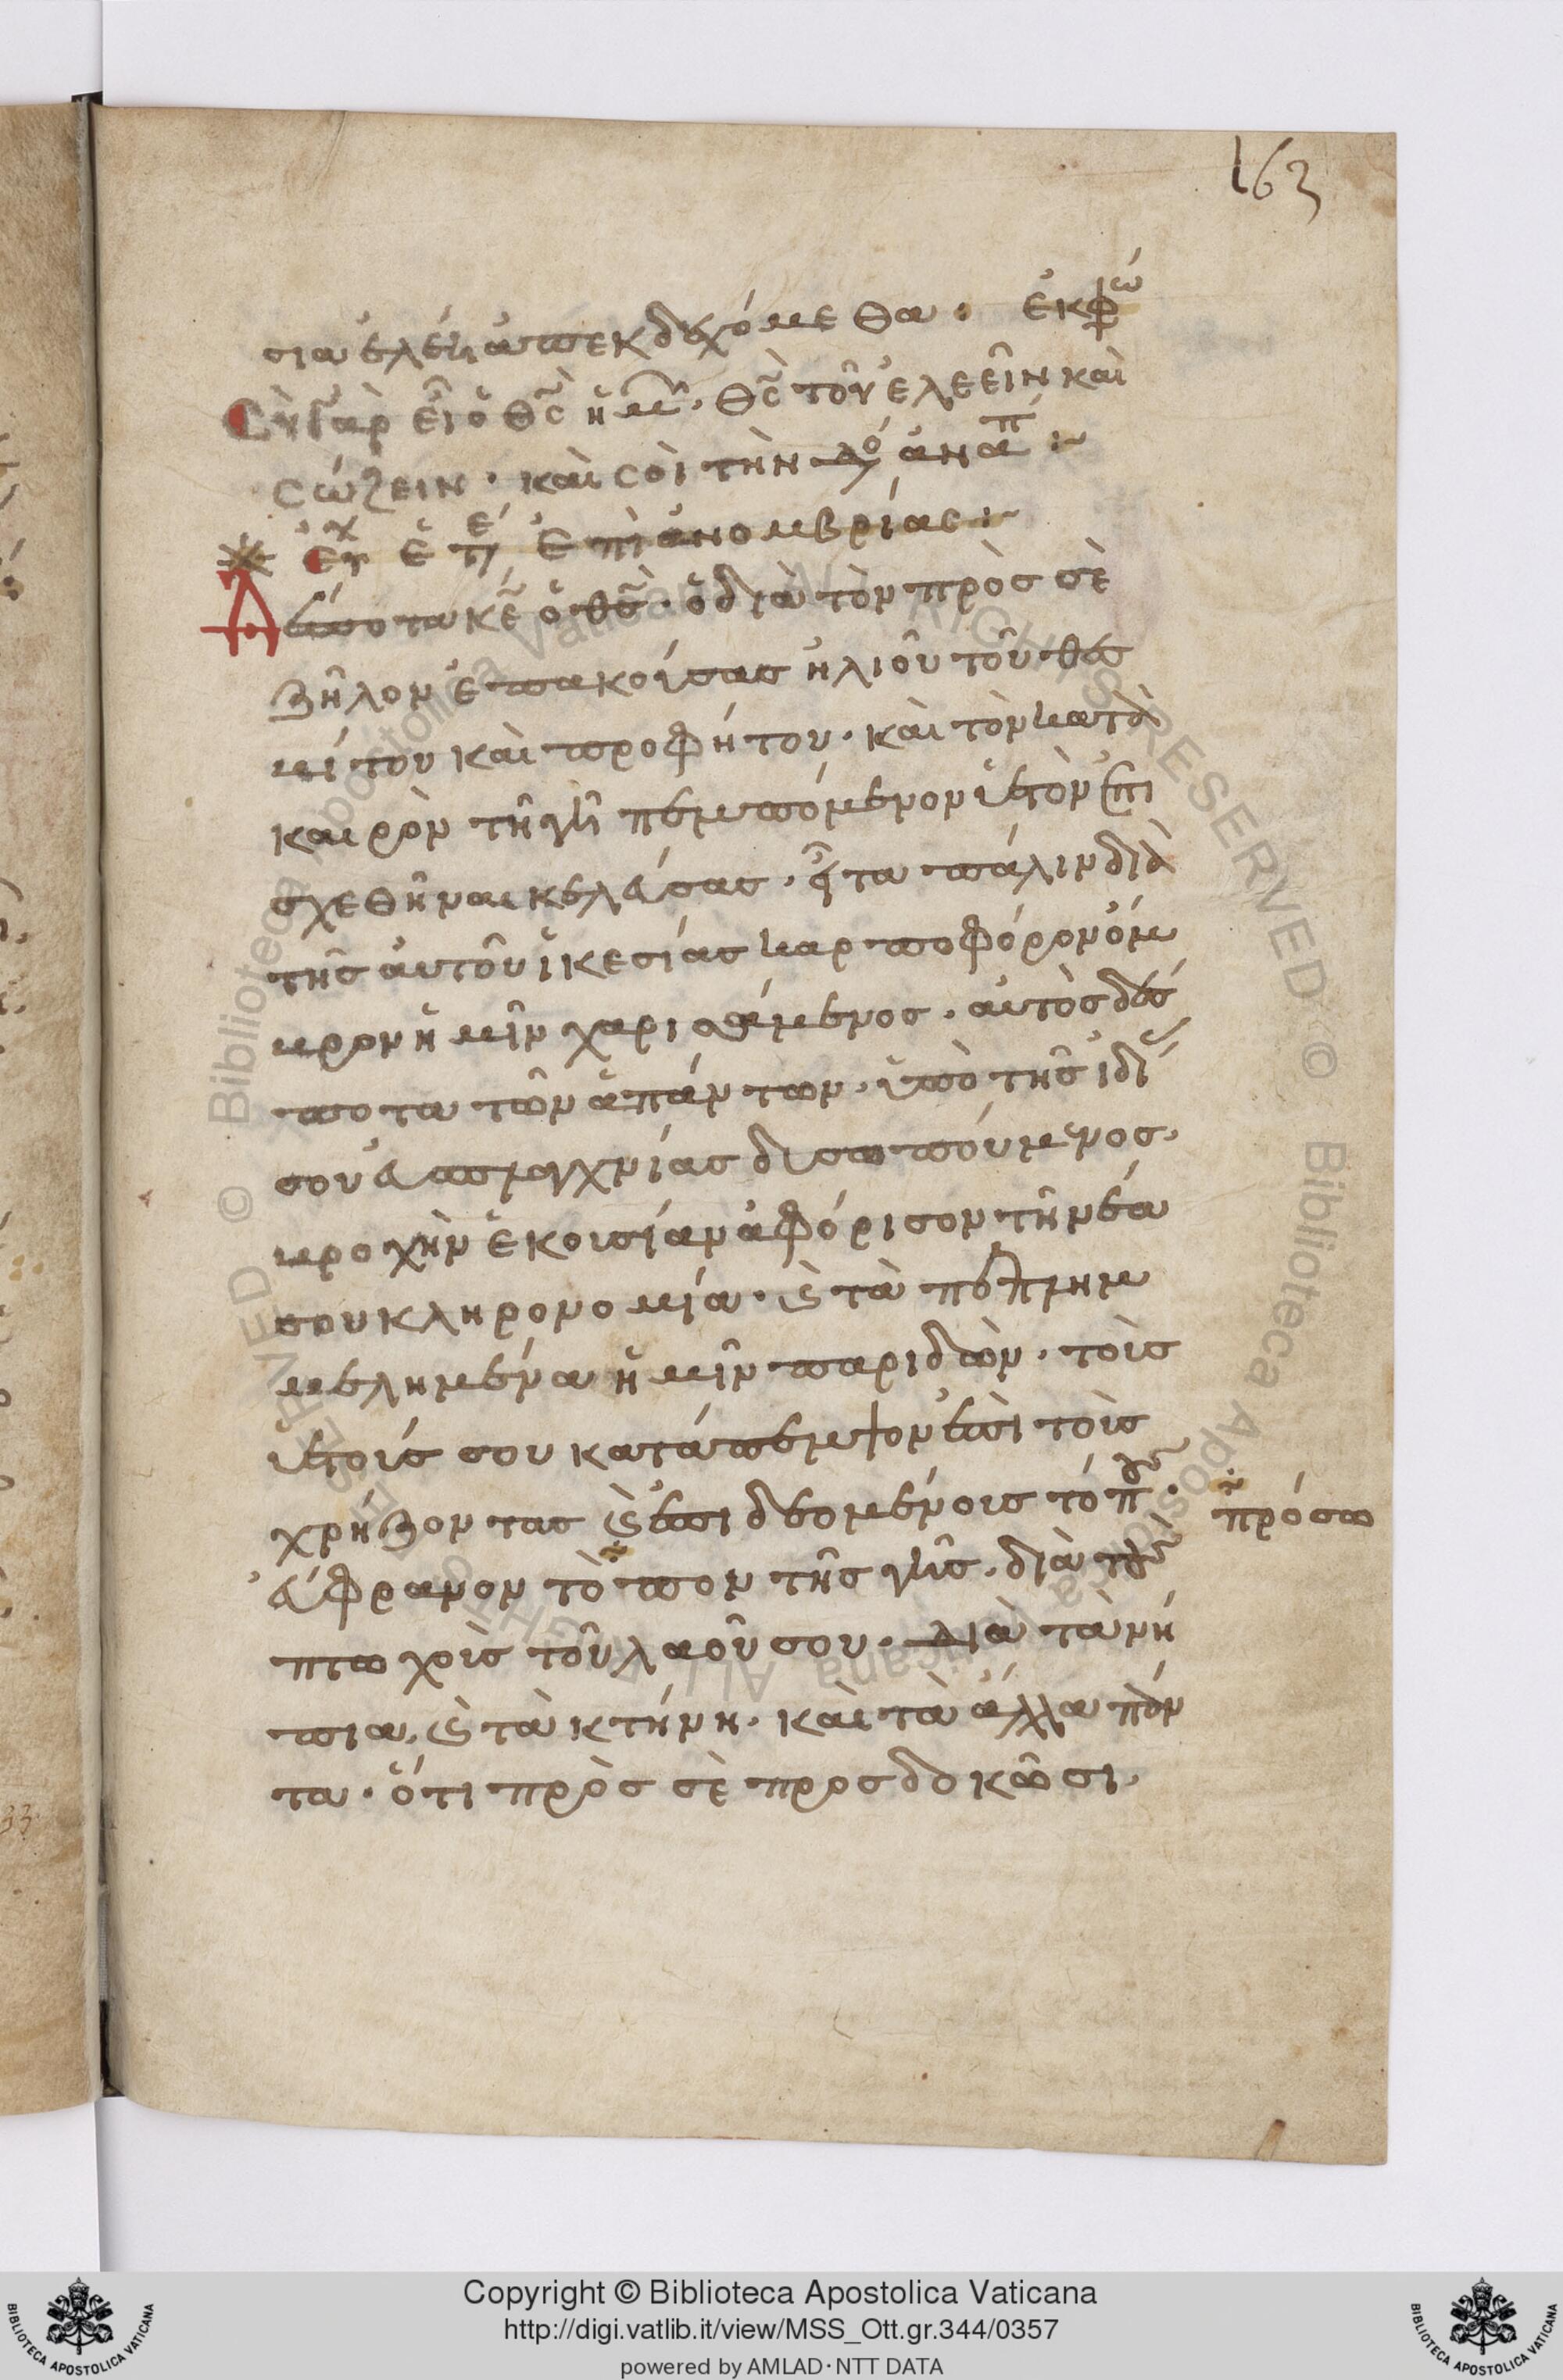 163
σια ἐλέη ἀπεκδεχόμεθα· ἐκφώ
Σὺ γὰρ εἶ ὁ θς ἡμ· θς τοῦ ἐλεεῖν καὶ
σώζειν· καὶ σοὶ τὴν δό ἀναπ :~
εὐχ ἑτε ἐπὶ ἀνομβρίας :~
Δέσποτα κε ὁ θς· ὁ διὰ τὸν πρὸς σὲ
ζῆλον ἐπακούσας ἡλιοῦ τοῦ θεσ
βίτου καὶ προφήτου· καὶ τὸν κατὰ
καιρὸν τῆ γῆ πεμπόμενον ὑετὸν ἐπι
σχεθῆναι κελεύσας· εἶτα πάλιν διὰ
τῆς αὐτοῦ ἱκεσίας καρποφόρον ὄμ
βρον ἡμῖν χαρισάμενος· αὐτὸς δέσ
ποτα τῶν ἁπάντων· ὑπὸ τῆς ἰδί
σου εὐσπλαγχνίας δυσωπούμενος·
βροχὴν ἑκουσίαν ἀφόρισον τῆ νέα
σου κληρονομία· καὶ τὰ πεπλημ
μελημένα ἡμῖν παριδὼν· τοὺς
ὑετούς σου κατάπεμψον ἐπὶ τοὺς
χρήζοντας καὶ ἐπιδεομένοις τόπους·
εὔφρανον τὸ πον τῆς γῆς· διὰ τοὺς
πρόσω
πτωχοὺς τοῦ λαοῦ σου· διὰ τὰ νή
πια, καὶ τὰ κτήνη· καὶ τὰ ἄλλα πάν
τα· ὅτι πρὸς σὲ προσδοκῶσι·
Copyright © Biblioteca Apostolica Vaticana
http://digi.vatlib.it/view/MSS_Ott.gr.344/0357
powered by AMLAD·NTT DATA
BIBLIOTECA APOSTOLICA VATICANA
BIBLIOTECA APOSTOLICA VATICANA